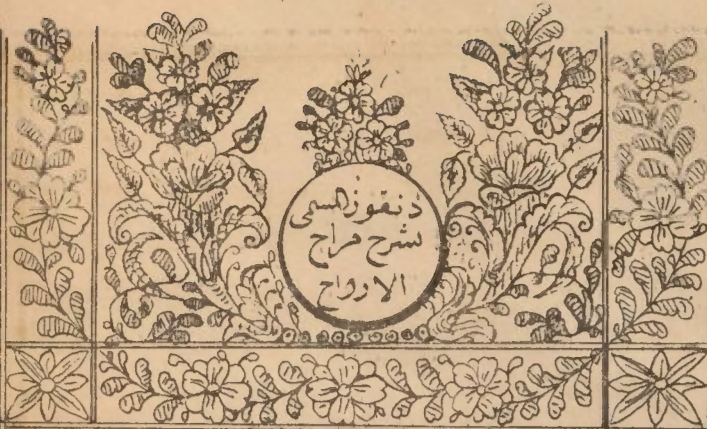 دنقوز المسمى
بشرح مراح
الارواح